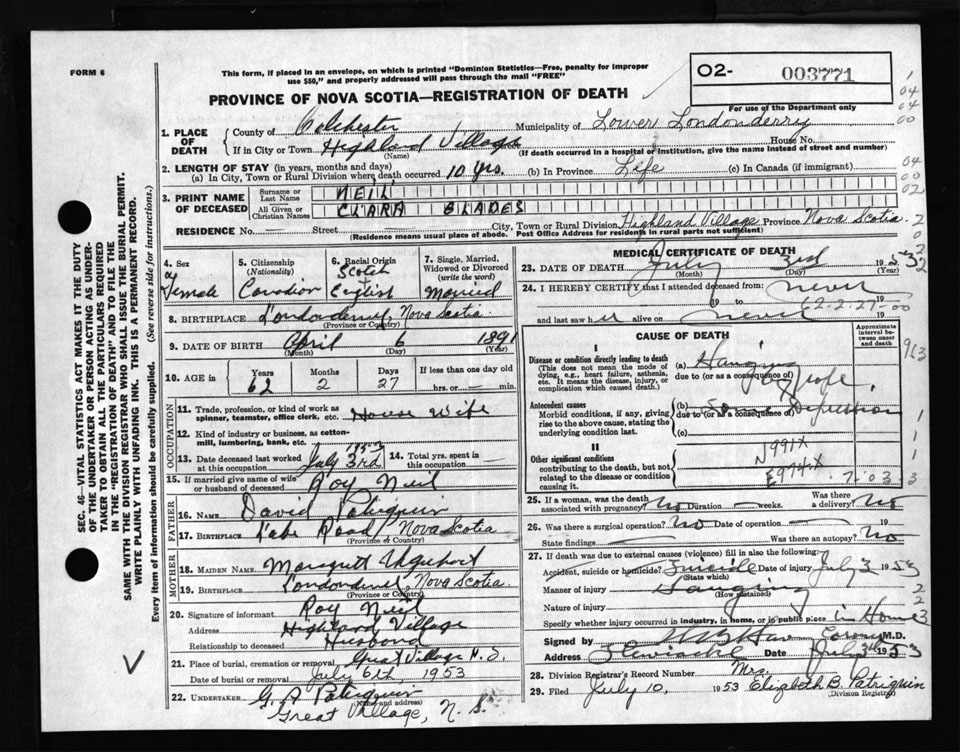 FORM 6
This form, if placed in an envelope, on which is printed "Dominion Statistics—Free, penalty for improper
use $50," and properly addressed will pass through the mail "FREE"
O2- 003771
For use of the Department only
PROVINCE OF NOVA SCOTIA—REGISTRATION OF DEATH
1. PLACE OF DEATH
County of Colchester Municipality of Lower Londonderry
If in City or Town Highland Village House No.
(Name) (If death occurred in a hospital or institution, give the name instead of street and number)
2. LENGTH OF STAY (in years, months and days)
(a) In City, Town or Rural Division where death occurred 10 yrs. (b) In Province Life (c) In Canada (if immigrant)
3. PRINT NAME OF DECEASED
Surname or Last Name NEIL
All Given or Christian Names CLARA BLADES
RESIDENCE No. — Street City, Town or Rural Division Highland Village Province Nova Scotia.
(Residence means usual place of abode. Post Office Address for residents in rural parts not sufficient)
4. Sex Female
5. Citizenship (Nationality) Canadian
6. Racial Origin Scotch English
7. Single, Married, Widowed or Divorced (write the word) Married
8. BIRTHPLACE Londonderry, Nova Scotia.
(Province or Country)
9. DATE OF BIRTH April 6 1891
(Month) (Day) (Year)
10. AGE in Years 62 Months 2 Days 27 If less than one day hrs. or — min.
OCCUPATION
11. Trade, profession, or kind of work as spinner, teamster, office clerk, etc. House Wife
12. Kind of industry or business, as cotton-mill, lumbering, bank, etc.
13. Date deceased last worked at this occupation July 3rd 1953
14. Total yrs. spent in this occupation —
15. If married give name of wife or husband of deceased Roy Neil
FATHER
16. NAME David Patriquin
17. BIRTHPLACE Road Nova Scotia
(Province or Country)
MOTHER
18. MAIDEN NAME Margrett Urquhart
19. BIRTHPLACE Londonderry Nova Scotia.
(Province or Country)
20. Signature of informant Roy Neil
Address Highland Village
Relationship to deceased Husband
21. Place of burial, cremation or removal Great Village N.S.
Date of burial or removal July 6th, 1953
22. UNDERTAKER G. A. Patriquin
(Name and address)
Great Village, N. S.
MEDICAL CERTIFICATE OF DEATH
23. DATE OF DEATH July 3rd 1953
(Month) (Day) (Year)
24. I HEREBY CERTIFY that I attended deceased from: never
19 to 19
62-2-27-00
and last saw her alive on never 19
CAUSE OF DEATH
Approximate interval between onset and death
I
Disease or condition directly leading to death
(This does not mean the mode of dying, e.g., heart failure, asthenia, etc. It means the disease, injury, or complication which caused death.)
(a) Hanging
due to (or as a consequence of)
by rope
Antecedent causes
Morbid conditions, if any, giving rise to the above cause, stating the underlying condition last.
(b)
due to (or as a consequence of)
(c)
II
Other significant conditions
contributing to the death, but not related to the disease or condition causing it.
N991X
E974X
7-03
913
25. If a woman, was the death associated with pregnancy? No Duration — weeks. Was there a delivery? No
26. Was there a surgical operation? No Date of operation — 19
State findings — Was there an autopsy? No
27. If death was due to external causes (violence) fill in also the following:
Accident, suicide or homicide? Suicide Date of injury July 3 1953
(State which)
Manner of injury Hanging
(How sustained)
Nature of injury
Specify whether injury occurred in industry, in home, or in public place in Home
Signed by M.D.
Address Date July 3rd 1953
28. Division Registrar's Record Number
29. Filed July 10, 1953 Mrs. Elizabeth B. Patriquin
(Division Registrar)
SEC. 46—VITAL STATISTICS ACT MAKES IT THE DUTY
OF THE UNDERTAKER OR PERSON ACTING AS UNDER-
TAKER TO OBTAIN ALL THE PARTICULARS REQUIRED
IN THE "REGISTRATION OF DEATH" AND TO FILE THE
SAME WITH THE DIVISION REGISTRAR WHO SHALL ISSUE THE BURIAL PERMIT.
WRITE PLAINLY WITH UNFADING INK. THIS IS A PERMANENT RECORD.
Every item of information should be carefully supplied. (See reverse side for instructions.)